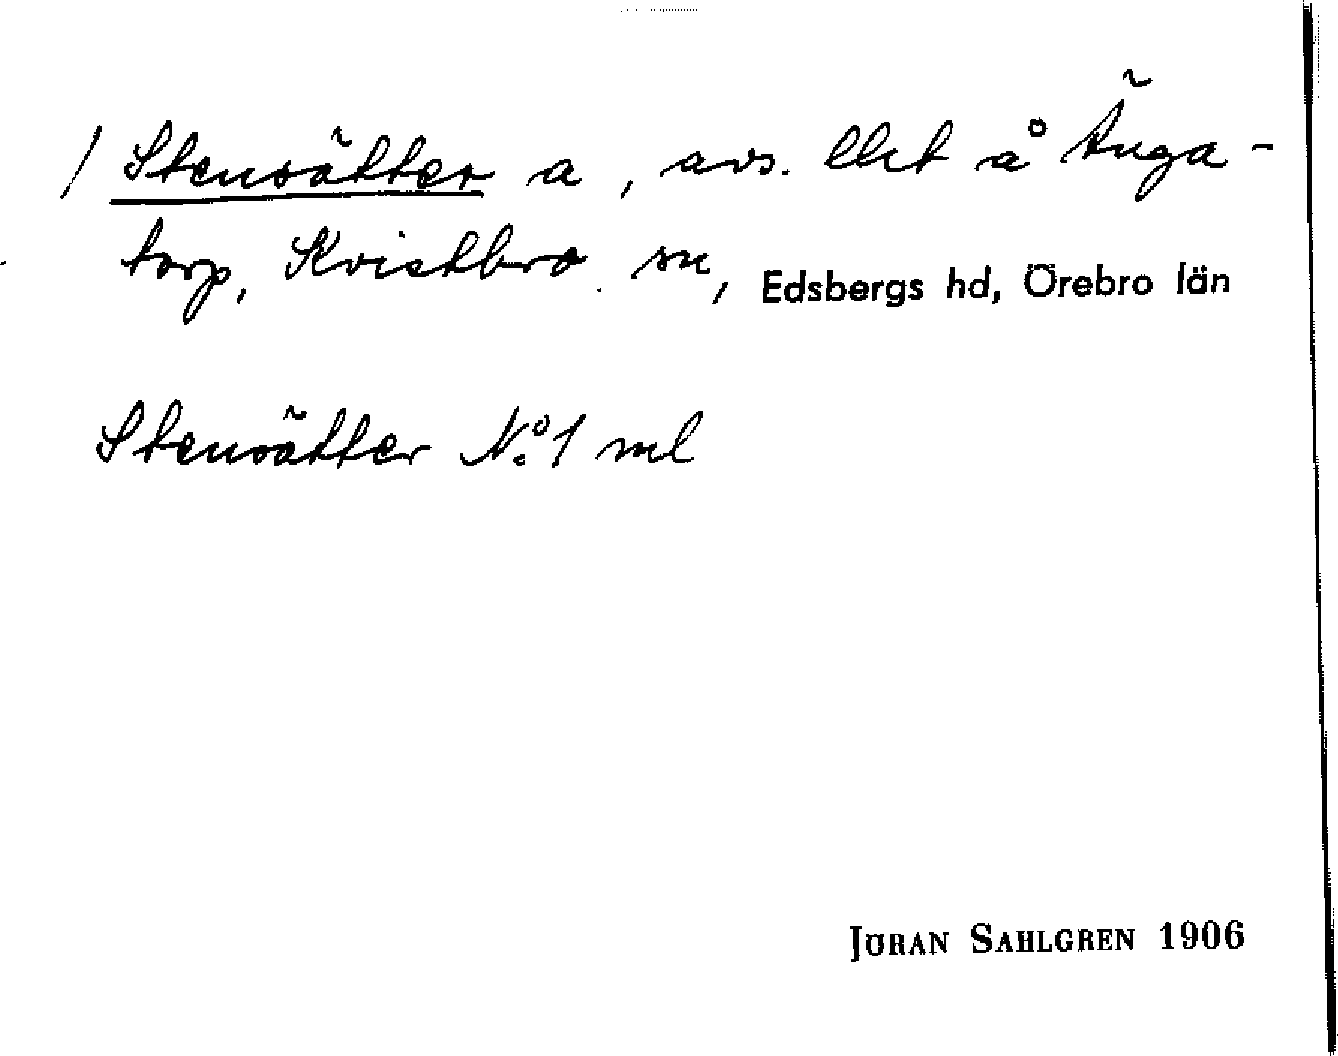 / Stensätter a, avs. lht å Änga-
torp, Kvistbro sn, Edsbergs hd, Örebro län
Stensätter No. 1 ml
JÖRAN SAHLGREN 1906